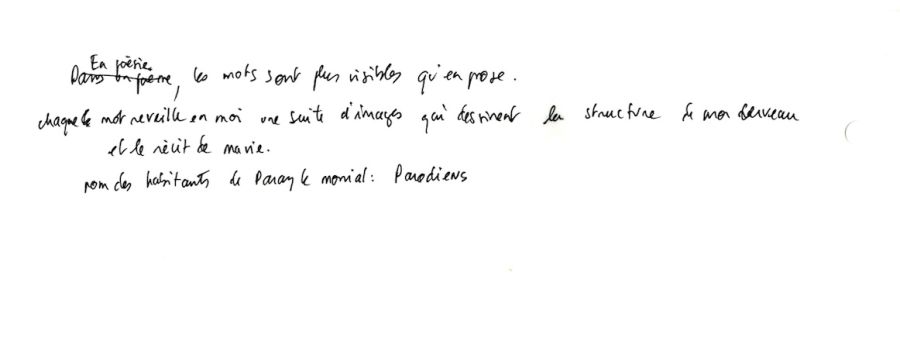 En poésie,
Dans un poème, les mots sont plus visibles qu'en prose.
chaque mot reveille en moi une suite d'images qui dessinent la structure de mon cerveau
et le récit de ma vie.
nom des habitants de Paray le monial : Parodiens